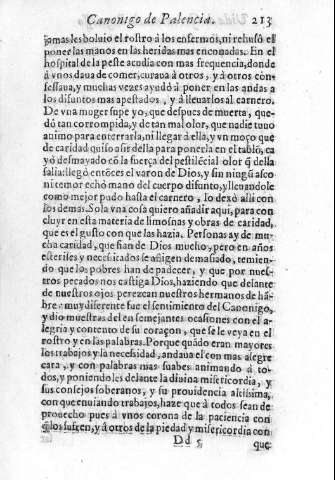 Canonigo de Palencia. 213
jamas les boluio el rostro à los enfermos, ni rehusò el
poner las manos en las heridas mas enconadas. En el
hospital de la peste acudia con mas frequencia, donde
à vnos daua de comer, curaua à otros, y à otros con-
fessaua, y muchas vezes ayudò à poner en las andas a
los difuntos mas apestados, y à lleuarlos al carnero.
De vna muger supe yo, que despues de muerta, que-
dò tan corrompida, y de tan mal olor, que nadie tuuo
animo para enterrarla, ni llegar à ella, y vn moço que
de caridad quiso asir della para ponerla en el tablõ, ca
yò desmayado cõ la fuerça del pestilẽcial olor q̃ della
salia: llegò entõces el varon de Dios, y sin ningũ asco
ni temor echò mano del cuerpo difunto, y lleuandole
como mejor pudo hasta el carnero, lo dexò alli con
los demas. Sola vna cosa quiero añadir aqui, para con
cluyr en esta materia de limosnas y obras de caridad,
que es el gusto con que las hazia. Personas ay de mu-
cha caridad, que fian de Dios mucho, pero en años
esteriles y necessitados se afligen demasiado, temien-
do que los pobres han de padecer, y que por nues-
tros pecados nos castiga Dios, haziendo que delante
de nuestros ojos perezcan nuestros hermanos de hã-
bre: muy diferente fue el sentimiento del Canonigo,
y dio muestras del en semejantes ocasiones con el a-
legria y contento de su coraçon, que se le veya en el
rostro y en las palabras. Porque quãdo eran mayores
los trabajos y la necessidad, andaua el con mas alegre
cara, y con palabras mas suabes animando à to-
dos, y poniendoles delante la diuina misericordia, y
sus consejos soberanos, y su prouidencia altissima,
con que enuiando trabajos, haze que à todos sean de
prouecho pues à vnos corona de la paciencia con
q̃ los sufren, y à otros de la piedad y misericordia con
Dd 5 que